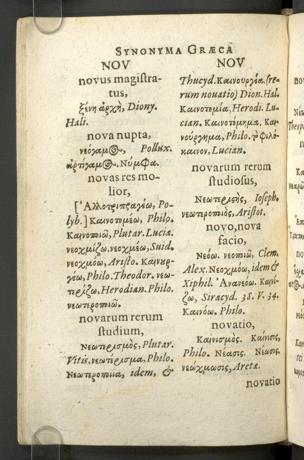 SYNONYMA GRÆCA
NOV
novus magistra-
tus,
ξένη ἀρχὴ, Diony.
Hali.
nova nupta,
νεόγαμ@, Pollux.
ἀρτίγαμ@. Νύμφα.
novas res mo-
lior,
[Ἀλλοτριπραγέω, Po-
lyb.] Καινοτομέω, Philo.
Καινοποιῶ, Plutar. Lucia.
νεοχμίζω. νεοχμέω, Suid.
νεοχμόω, Aristo. Καινουρ-
γέω, Philo. Theodor. νεω-
τερίζω, Herodian. Philo.
νεωτεροποιῶ.
novarum rerum
studium,
Νεωτερισμὸς, Plutar.
Vitis. νεωτέρισμα, Philo.
Νεωτεροποιία, idem, &
NOV
Thucyd. Καινουργία. (re-
rum novatio) Dion. Hal.
Καινοτομία, Herodi. Lu-
cian. Καινοτόμημα, Και-
νούργημα, Philo. τὸ φιλό-
καινον, Lucian.
novarum rerum
studiosus,
Νεωτεριστὴς, Ioseph.
νεωτεροποιὸς, Aristot.
novo, nova
facio,
Νεόω. νεοποιῶ, Clem.
Alex. Νεοχμόω, idem &
Xiphil. Ἀνανεόω. Καινί-
ζω, Siracyd. 38. V. 34.
Καινόω. Philo.
novatio,
Καινισμὸς. Καίνισις,
Philo. Νέασις. Νέωσις.
νεόχμωσις, Areta.
novatio